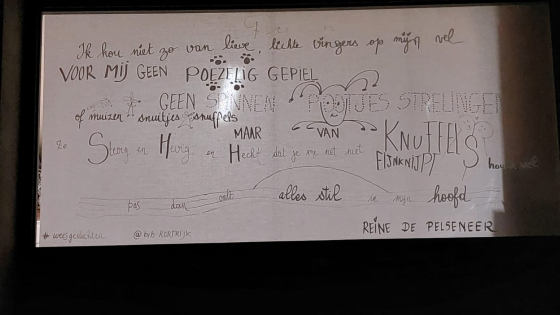 Ik hou niet zo van lieve, lichte vingers op mijn vel
VOOR MIJ GEEN POEZELIG GEPIEL
GEEN SPINNEN POOTJES STRELINGEN
of muizen snuitjes snuffels
MAAR VAN KNUFFELS
Ze Stevig en Hevig en Hecht dat je me net niet FIJNKNIJPT hou ik wel
pas dan valt alles stil in mijn hoofd
REINE DE PELSENEER
@bib KORTRIJK